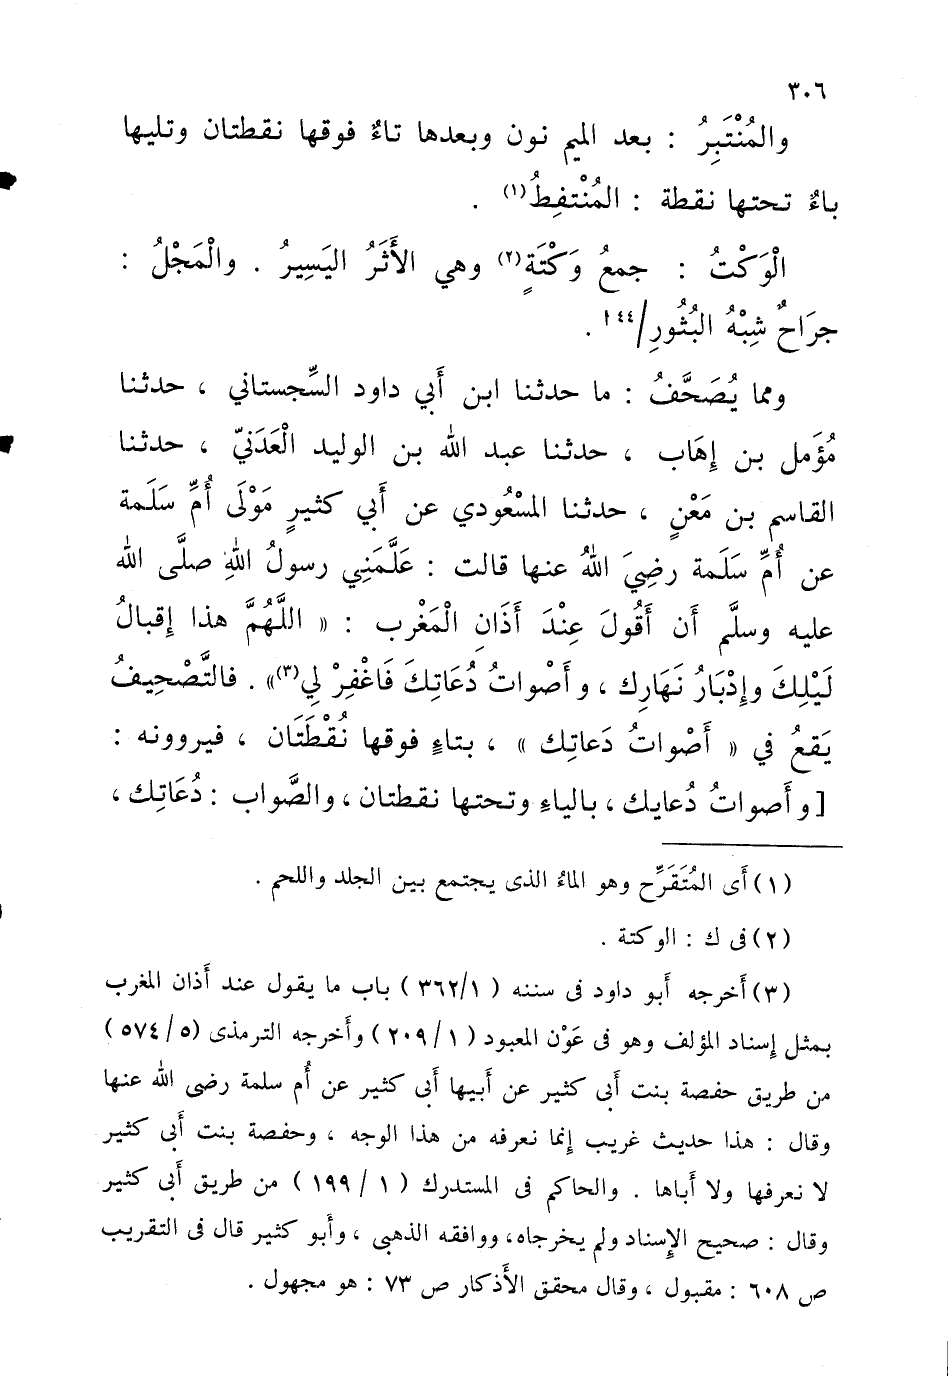 ٣٠٦
والمُنْتَبِرُ : بعد الميم نون وبعدها تاءٌ فوقها نقطتان وتليها
باءٌ تحتها نقطة : المُنْتفِطُ(١) .
الْوَكْتُ : جمعُ وَكْتَةٍ(٢) وهي الأَثَرُ اليَسِيرُ . والْمَجْلُ :
جرَاحٌ شِبْهُ البُثُورِ/١٤٤ .
ومما يُصَحَّفُ : ما حدثنا ابن أَبي داود السِّجستاني ، حدثنا
مُؤَمل بن إِهَاب ، حدثنا عبد الله بن الوليد الْعَدَنيّ ، حدثنا
القاسم بن مَعْنٍ ، حدثنا المسْعُودي عن أَبي كثيرٍ مَوْلَى أُمِّ سَلَمة
عن أُمِّ سَلَمة رضِيَ اللهُ عنها قالت : عَلَّمَنِي رسولُ اللهِ صلَّى الله
عليه وسلَّم أن أَقُولَ عِنْدَ أَذَانِ الْمَغْرب : « اللَّهُمَّ هذا إِقبالُ
لَيْلِكَ وإِدْبَارُ نَهَارِك ، وأَصْواتُ دُعَاتِكَ فَاغْفِرْ لِي(٣)» . فالتَّصْحِيفُ
يَقعُ في « أَصْواتُ دَعاتِك » ، بتاءٍ فوقها نُقْطَتَان ، فيروونه :
[وأَصواتُ دُعايك ، بالياءِ وتحتها نقطتان ، والصَّواب : دُعَاتِك ،
(١) أَى المُتَقَرِّح وهو الماءُ الذى يجتمع بين الجلد واللحم .
(٢) فى ك : الوكتة .
(٣) أَخرجه أَبو داود فى سننه (٣٦٢/١) باب ما يقول عند أَذان المغرب
بمثل إِسناد المؤلف وهو فى عَوْن المعبود (٢٠٩/١) وأَخرجه الترمذى (٥٧٤/٥)
من طريق حفصة بنت أَبى كثير عن أَبيها أَبى كثير عن أُم سلمة رضى الله عنها
وقال : هذا حديث غريب إِنما نعرفه من هذا الوجه ، وحفصة بنت أَبى كثير
لا نعرفها ولا أَباها . والحاكم فى المستدرك (١٩٩/١) من طريق أَبى كثير
وقال : صحيح الإِسناد ولم يخرجاه، ووافقه الذهبى ، وأَبو كثير قال فى التقريب
ص ٦٠٨ : مقبول ، وقال محقق الأَذكار ص ٧٣ : هو مجهول .